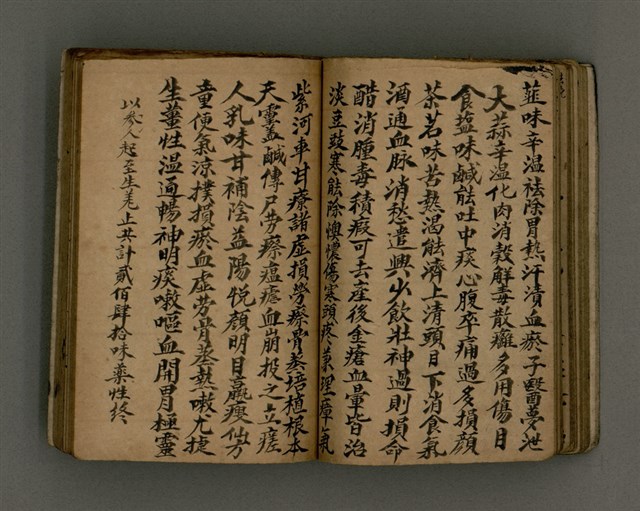 韮味辛温祛除胃熱汗漬血瘀子醫夢泄
大蒜辛温化肉消穀解毒散癰多用傷目
食塩味鹹能吐中痰心腹卒痛過多損顔
茶茗味苦熱渴能濟上清頭目下消食氣
酒通血脉消愁遣興少飲壮神過則損命
醋消腫毒積瘕可去産後金瘡血暈皆治
淡豆豉寒能除懊憹傷寒頭疼兼理瘴氣
紫河車甘療諸虚損勞瘵骨蒸培植根本
天靈盖鹹傳尸劳瘵瘟瘧血崩投之立瘥
人乳味甘補陰益陽悦顔明目羸瘦仙方
童便氣凉撲損瘀血虚劳骨蒸熱嗽尤捷
生薑性温通暢神明痰嗽嘔血開胃極靈
以參人起至生羗止共計貳佰肆拾味藥性終